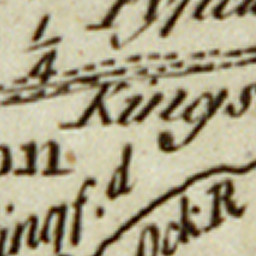 1/4
Kings
on
ingf.d
Ock R